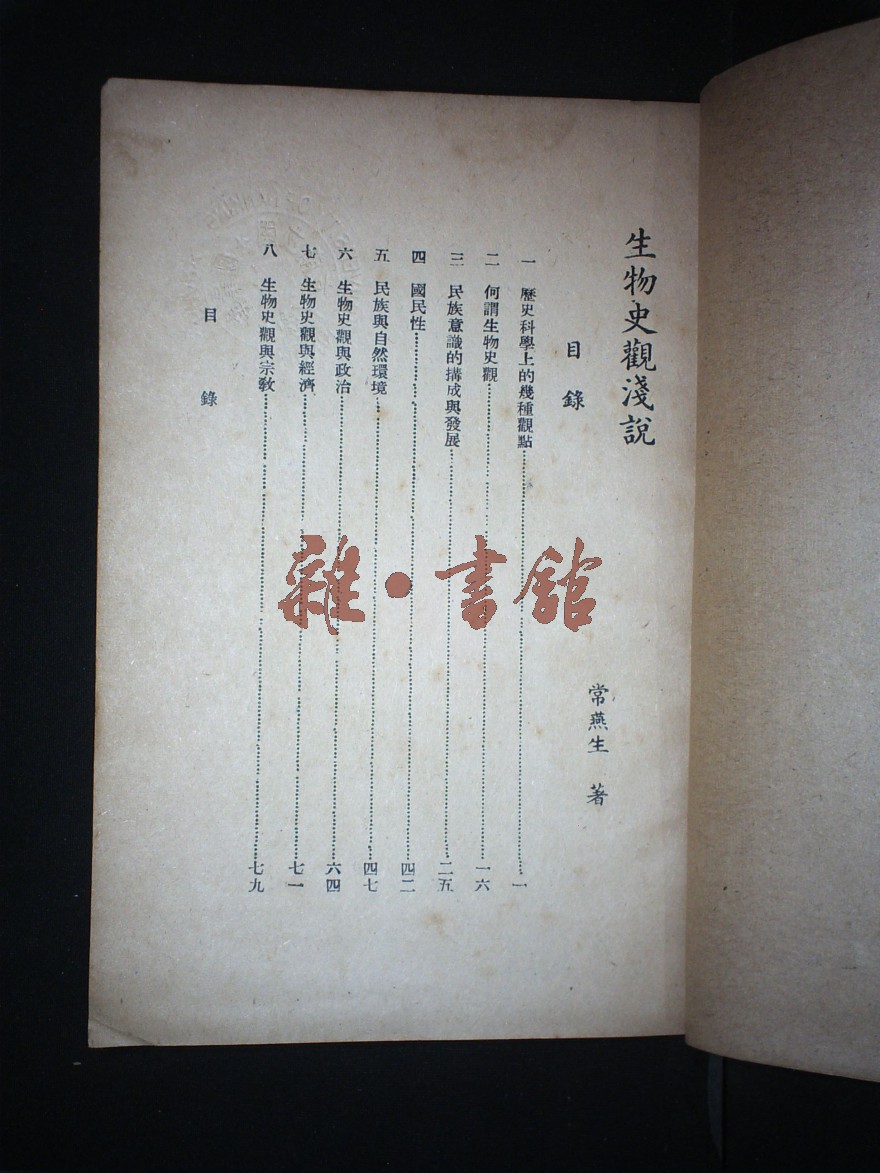 生物史觀淺說
目錄
常燕生 著
一 歷史科學上的幾種觀點 一
二 何謂生物史觀 一六
三 民族意識的搆成與發展 二五
四 國民性 四二
五 民族與自然環境 四七
六 生物史觀與政治 六四
七 生物史觀與經濟 七一
八 生物史觀與宗教 七九
目錄
雜·書館